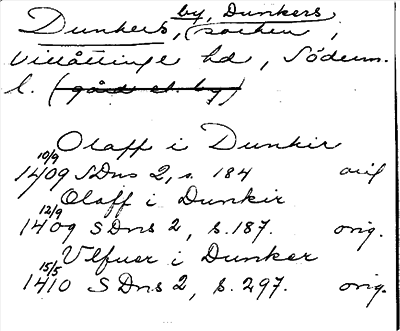 Dunkers, by, Dunkers socken,
Villåttinge hd, Söderm.
l. (gård el. by)
Olaff i Dunkir
10/9 1409 SDns 2, s. 184 orig.
Olaff i Dunkir
12/9 1409 SDns 2, s. 187. orig.
Ulfuer i Dunker
15/5 1410 SDns 2, s. 297. orig.